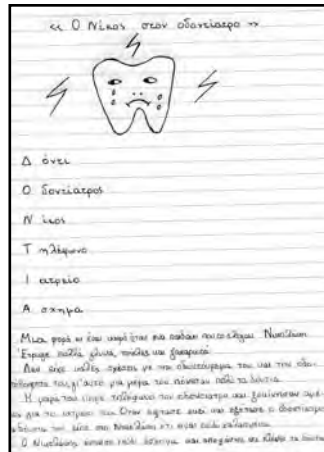 << Ο Νίκος στον οδοντίατρο >>
Δ όντι
Ο δοντίατρος
Ν ίκος
Τ ηλέφωνο
Ι ατρείο
Α σχημα
Μια φορά κι έναν καιρό ήταν ένα παιδάκι που το έλεγαν Νικολάκη.
Έτρωγε πολλά γλυκά, τούρτες και ζαχαρωτά.
Δεν είχε καλές σχέσεις με την οδοντόκρεμα του και την οδο-
ντόβουρτσα του, γι' αυτό μια μέρα τον πόνεσαν πολύ τα δόντια.
Η μαμά του πήρε τηλέφωνο τον οδοντίατρο και ξεκίνησαν αμέ-
σως για το ιατρείο του. Όταν έφτασε εκεί και εξέτασε ο οδοντίατρος
τα δόντια του είπε στο Νικολάκη ότι είναι πολύ χαλασμένα.
Ο Νικολάκης ένιωσε πολύ άσχημα και αποφάσισε να πλένει τα δόντια